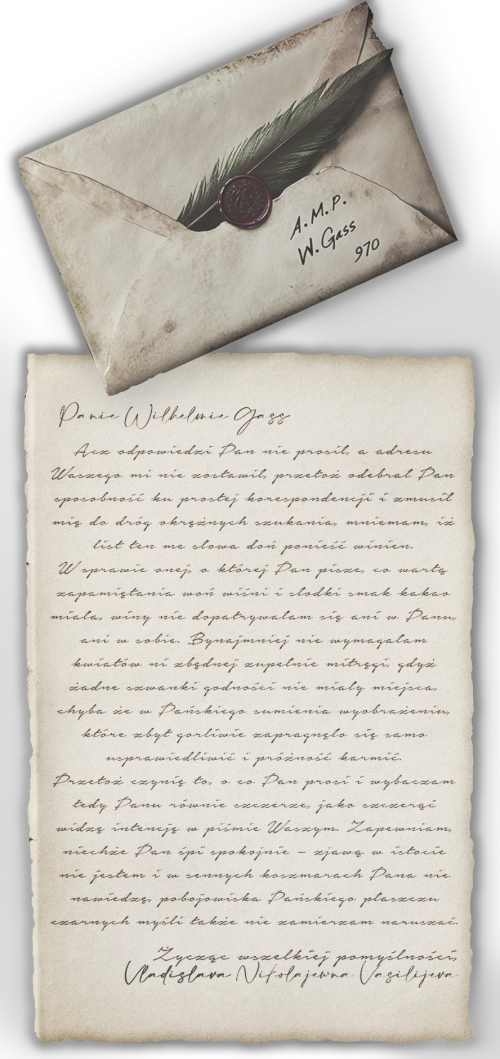 A.M.P.
W.Gass
970
Panie Wilhelmie Gass
Acz odpowiedzi Pan nie prosił, a adresu
Waszego mi nie zostawił, przetoż odebrał Pan
sposobność ku prostej korespondencji i zmusił
mię do dróg okrężnych szukania, mniemam, iż
list ten me słowa doń ponieść winien.
W sprawie onej, o której Pan pisze, co wartą
zapamiętania woń wiśni i słodki smak kakao
miała, winy nie dopatrywałam się ani w Panu,
ani w sobie. Bynajmniej nie wymagałam
kwiatów ni zbędnej zupełnie mitręgi, gdyż
żadne szwanki godności nie miały miejsca,
chyba że w Pańskiego sumienia wyobrażeniu,
które zbyt gorliwie zapragnęło się samo
usprawiedliwić i próżność karmić.
Przetoż czynię to, o co Pan prosi i wybaczam
tedy Panu równie szczerze, jako szczerość
widzę intencję w piśmie Waszym. Zapewniam,
niechże Pan śpi spokojnie – zjawą w istocie
nie jestem i w sennych koszmarach Pana nie
nawiedzę, pobojowiska Pańskiego płaszczu
czarnych myśli także nie zamierzam naruszać.
Życząc wszelkiej pomyślności,
Vladislava Nikolajewna Vasilijeva